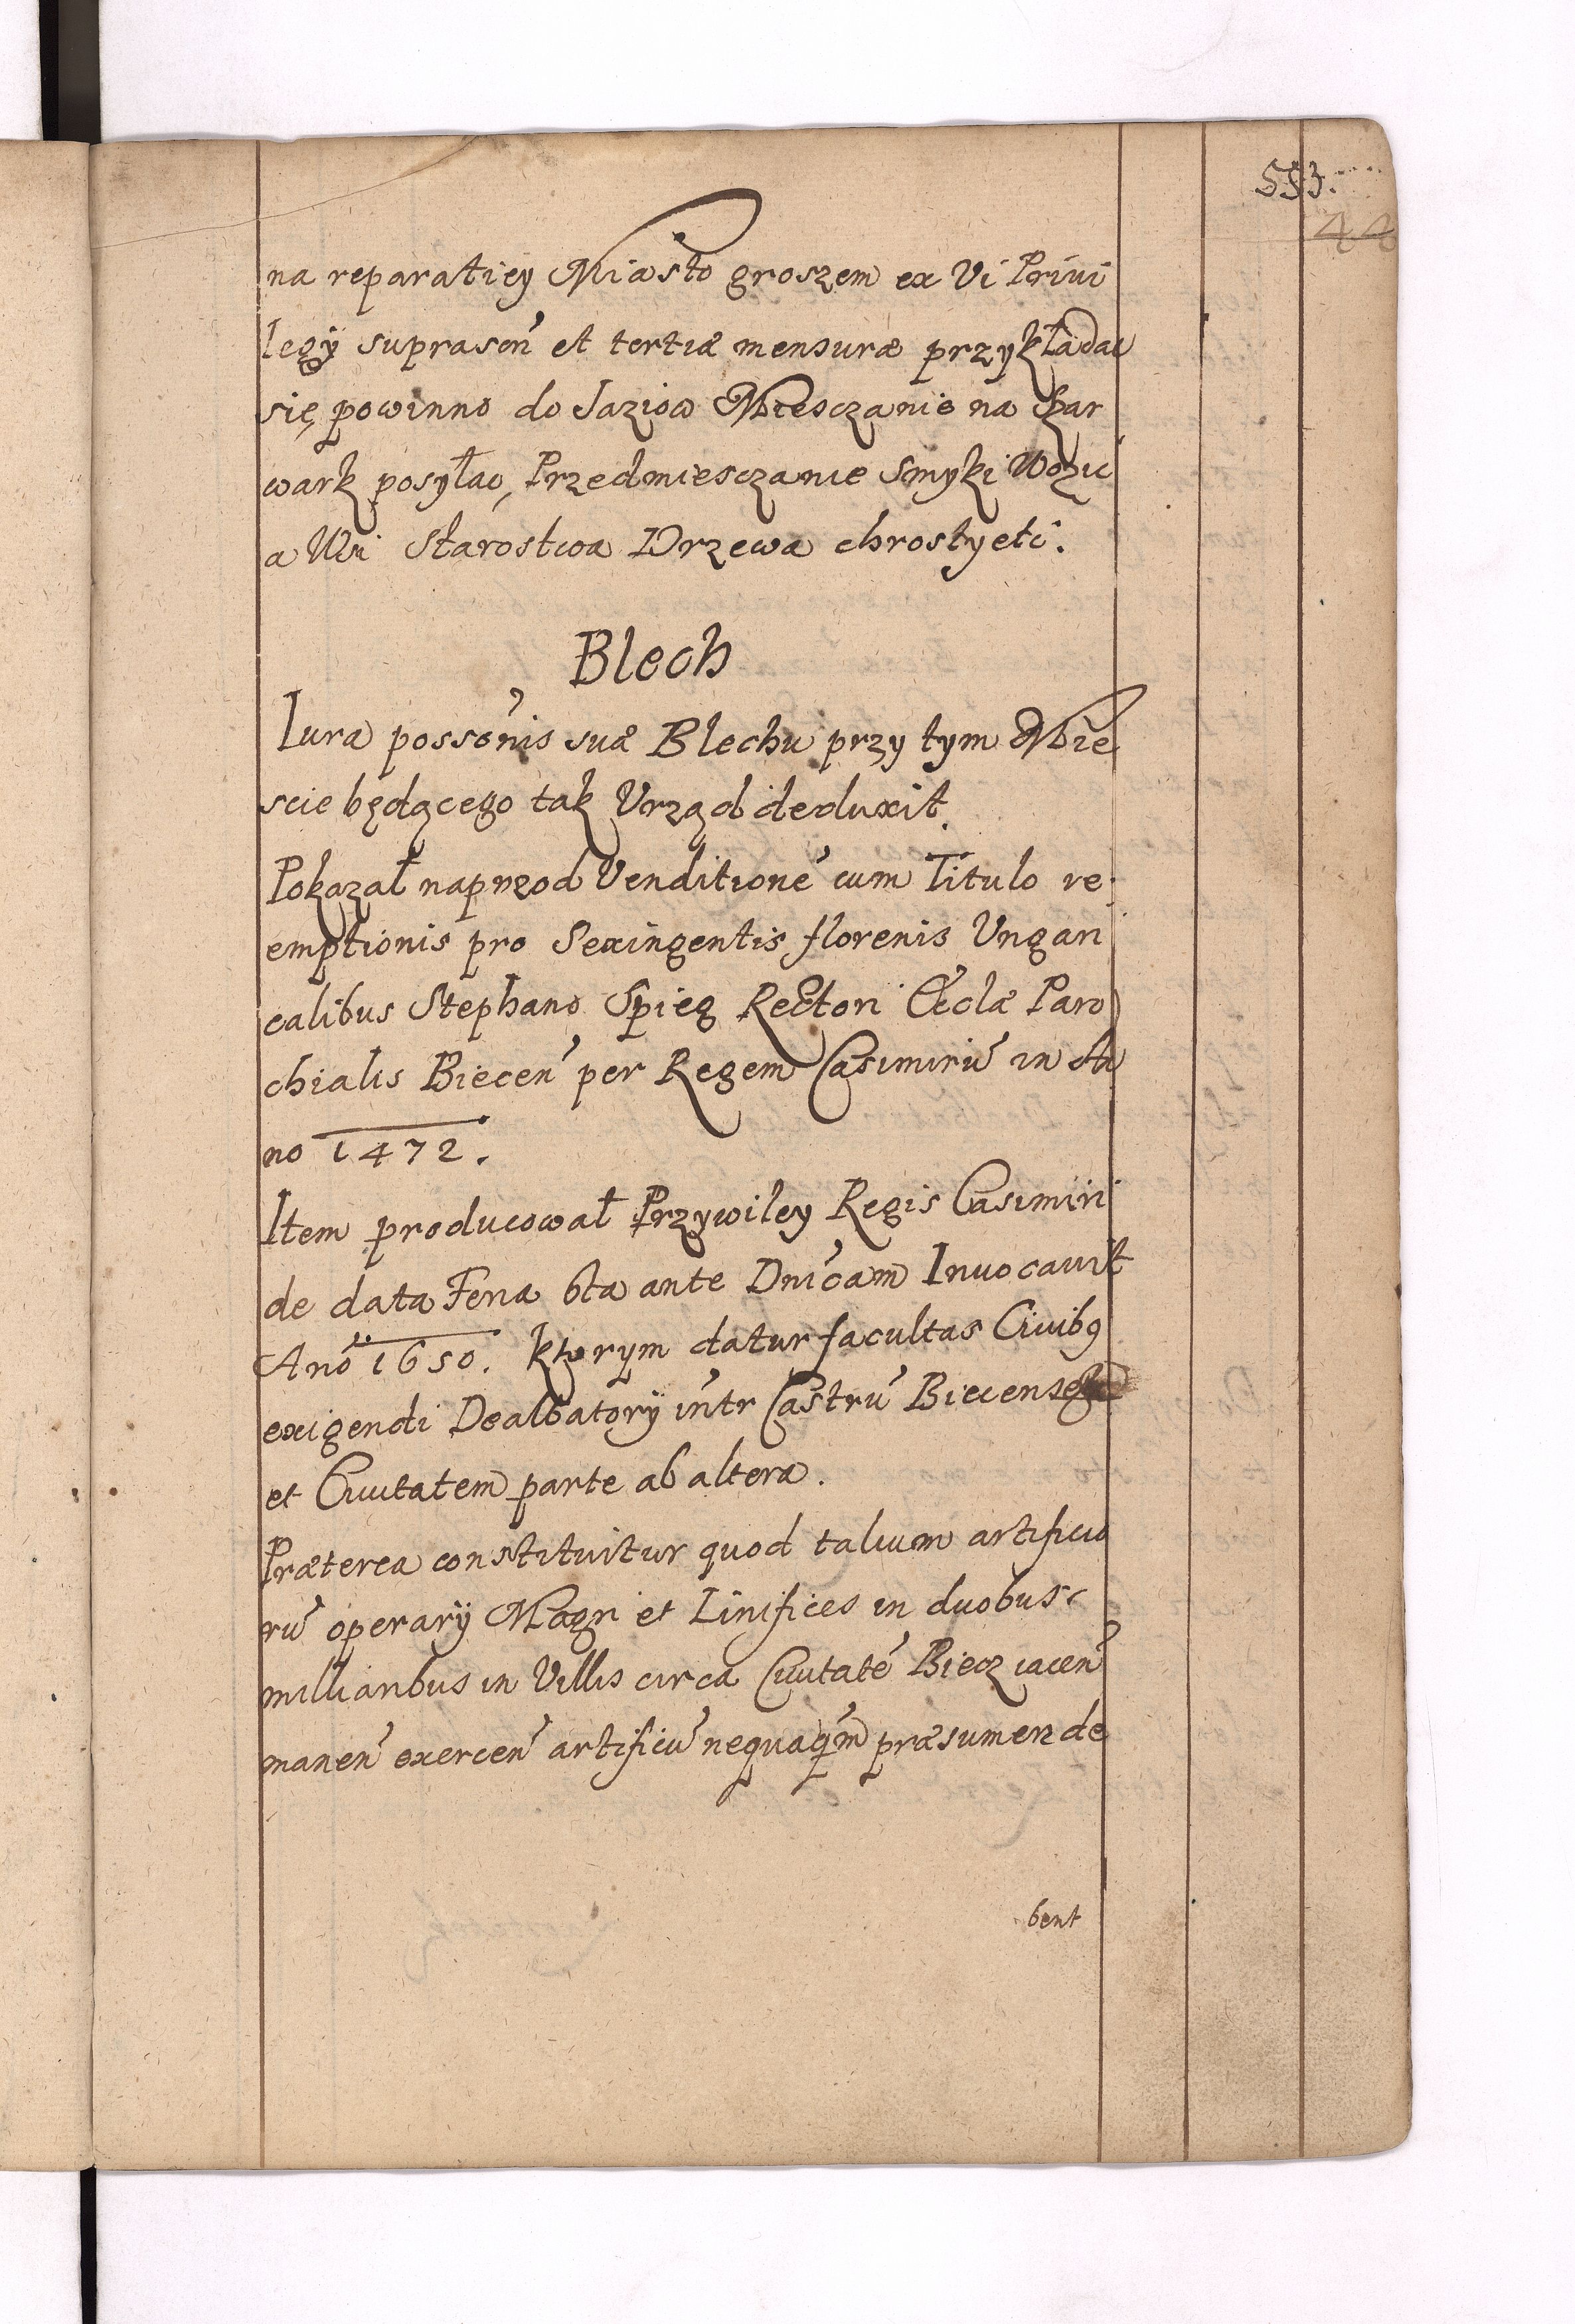 553.
44
na reparatiey Miasto groszem ex Vi Privi
legÿ suprasen̛ et tertiæ mensuræ przykładac
się powinno do Jaziow Miesczanie na szar
wark posyłac, Przedmiesczanie smyki Wozic
a Wsi Starostwa Drzewa chrosty etc.
Blech
Iura possōnis suæ Blechu przy tym Mie
scie będącego tak Vrząd deduxit.
Pokazał naprzod Venditionē cum Titulo re
emptionis pro Sexingentis florenis Ungari
calibus Stephano Spieg Rectori Ecclæ Paro
chialis Biecen̛ per Regem Casimirū in An
no 1472.
Item producował Przywiley Regis Casimiri
de data Feria 6ta ante Dnicam Invocavit
Anō 1650. ktorym datur facultas Civibg
exigendi Dealbatorÿ intr Castrū Biecense
et Civitatem parte ab altera.
Præterea constituitur quod talium artificio
rū operarÿ Magri et Linifices in duobus
milliaribus in Villis circa Civitatē Biecz iacen̛
manen̛ exercen̛ artificiū nequaqm̄ præsumere de
bent